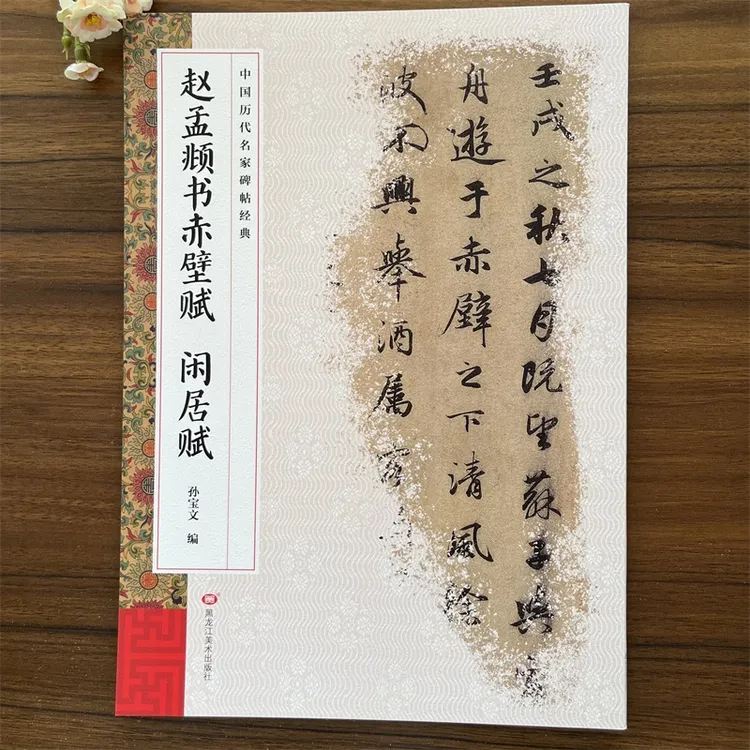 中国历代名家碑帖经典
赵孟𫖯书赤壁赋 闲居赋
孙宝文 编
黑龙江美术出版社
壬戌之秋七月既望蘇子與
舟遊于赤壁之下清風徐
波不興舉酒属客